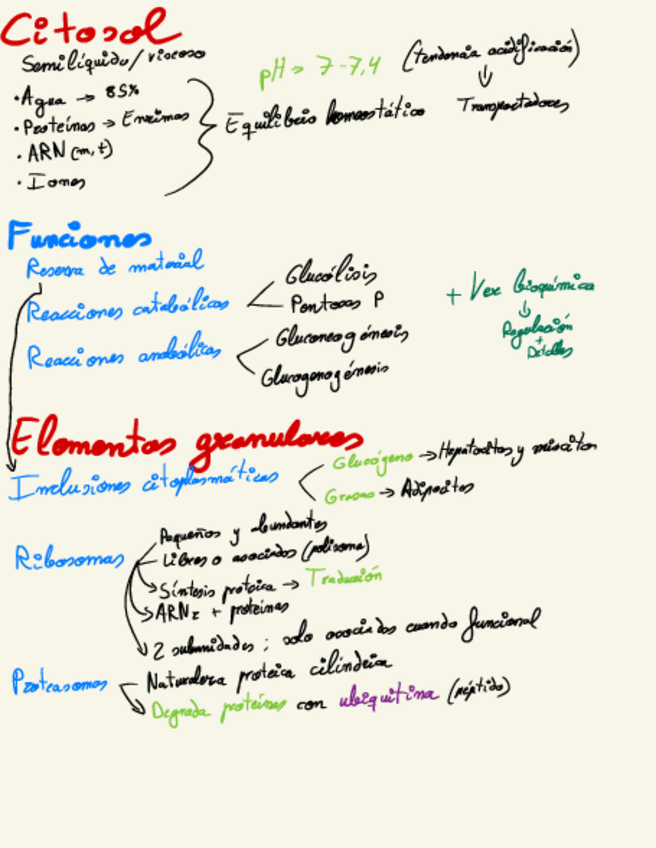 Citosol
Semilíquido / viscoso
pH > 7-7,4 (tendencia acidificación)
↓
Transportadores
· Agua → 85%
· Proteínas → Enzimas
· ARN (m, t)
· Iones
Equilibrio homeostático
Funciones
Reserva de material
Reacciones catabólicas
Glucólisis
Pentosas P
Reacciones anabólicas
Gluconeogénesis
Glucogenogénesis
+ Ver bioquímica
↓
Regulación
+
Detalles
Elementos granulares
Inclusiones citoplasmáticas
Glucógeno → Hepatocitos y miocitos
Grasas → Adipocitos
Ribosomas
Pequeños y abundantes
Libres o asociados (polisoma)
Síntesis proteica → Traducción
ARNr + proteínas
2 subunidades ; solo asociadas cuando funcional
Proteasomas
Naturaleza proteica cilíndrica
Degrada proteínas con ubiquitina (péptido)